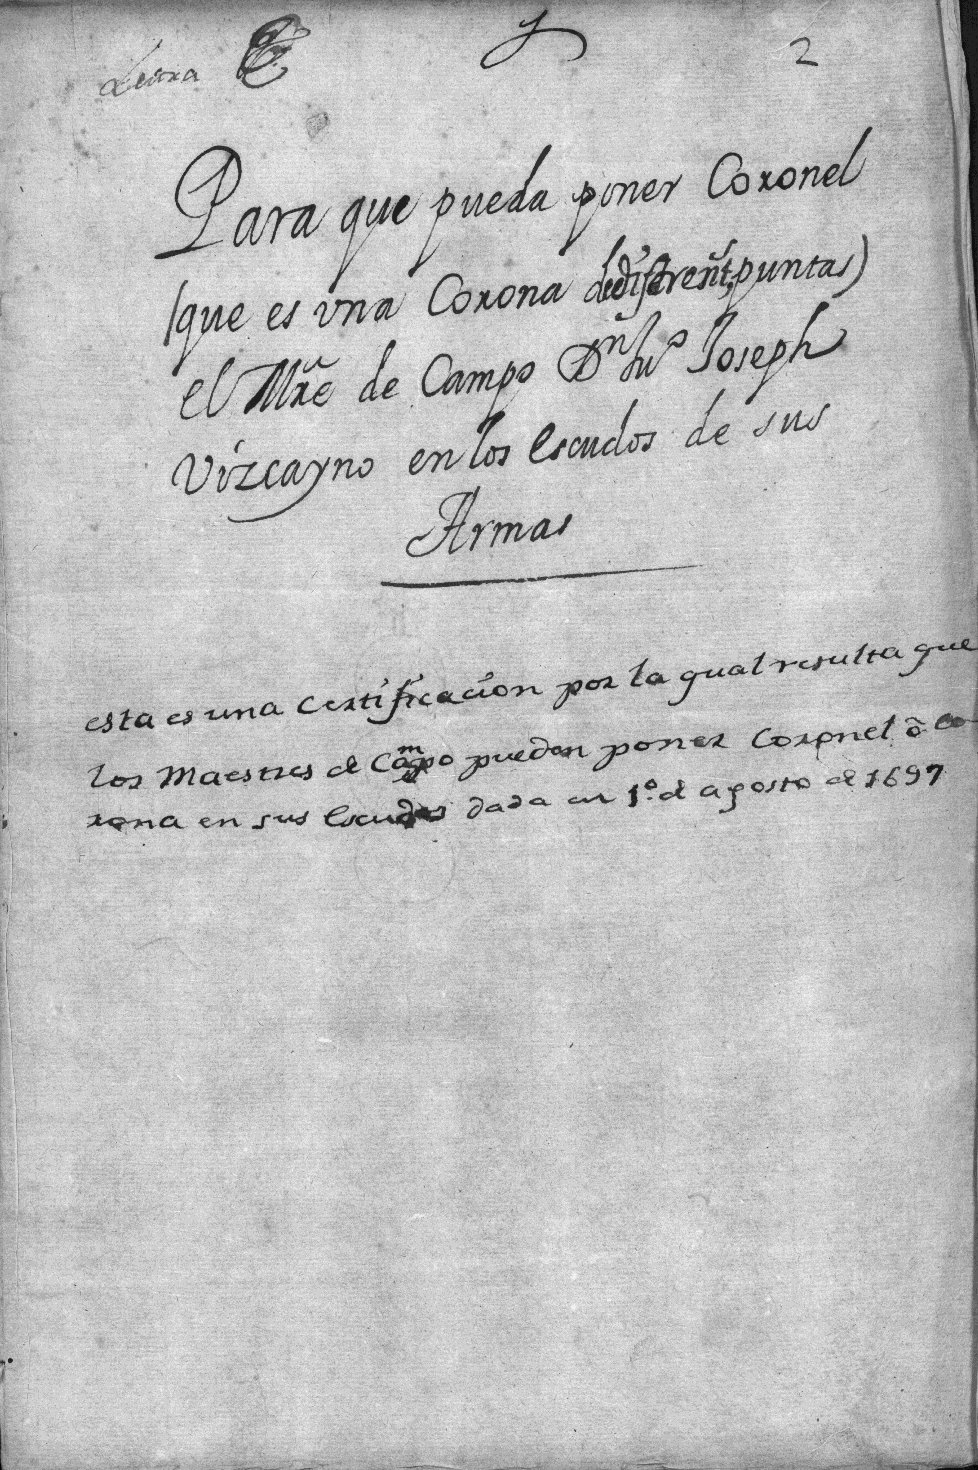 Letra
2
Para que pueda poner Coronel
(que es vna Corona de diferent,s puntas)
el Mre de Campo Dn Luo Joseph
Vizcayno en los Escudos de sus
Armas
esta es una Certificacion por la qual resulta que
los Maestres de Campo pueden poner Coronel ô co
rona en sus Escudos dada en 1º. de agosto de 1697